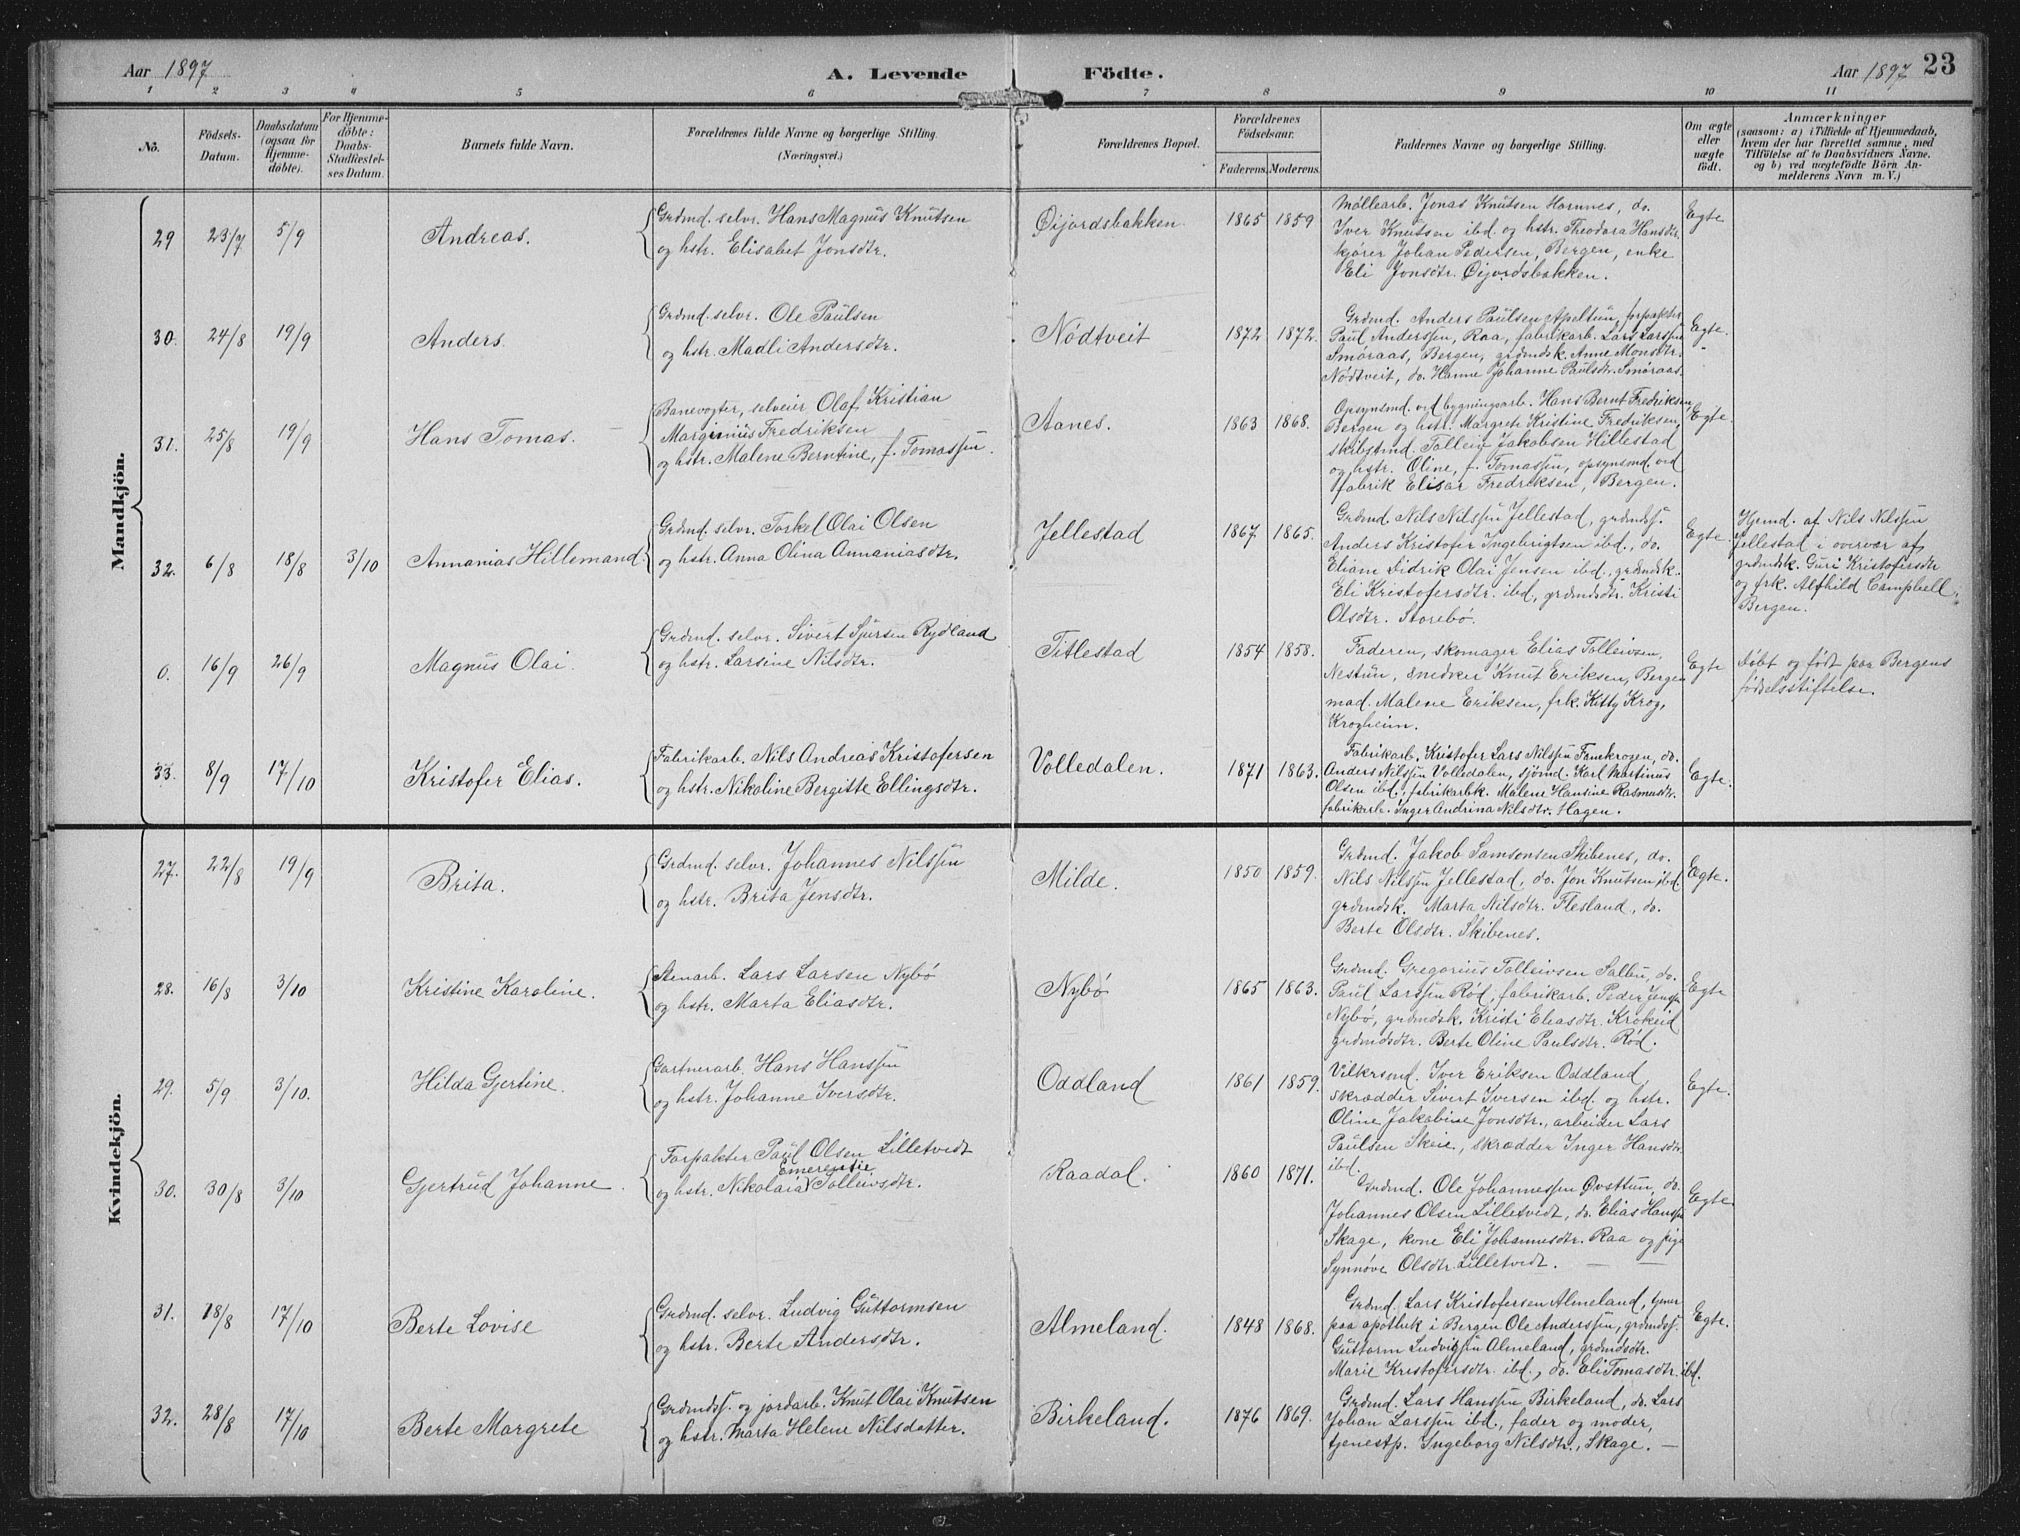 Aar 1897
A. Levende Födte.
Aar 1897 23
1 2 3 4 5 6 7 8 9 10 11
No.
Födsels-Datum.
Daabsdatum (ogsaa for Hjemme-döbte).
For Hjemme-döbte: Daabs-Stadfæstel-ses Datum.
Barnets fulde Navn.
Forældrenes fulde Navne og borgerlige Stilling. (Næringsvei.)
Forældrenes Bopæl.
Forældrenes Födselsaar.
Faderens. Moderens.
Faddernes Navne og borgerlige Stilling.
Om ægte eller uægte födt.
Anmærkninger
(saasom: a) i Tilfælde af Hjemmedaab,
hvem der har forrettet samme, med
Tilföielse af to Daabsvidners Navne.
og b) ved uægtefödte Börn An-
melderens Navn m. V.)
Mandkjön.
29 23/7 5/9 Andreas.
Grdmd. selvr. Hans Magnus Knutsen
og hstr. Elisabet Jonsdtr.
Øijordsbakken. 1865 1859
Möllearb. Jonas Knutsen Hamnes, do.
Iver Knutsen ibd. og hstr. Theodora Hansdtr.
kjörer Johan Pedersen, Bergen, enke
Eli Jonsdtr. Øijordsbakken.
Egte
30. 24/8 19/9 Anders.
Grdmd. selvr. Ole Paulsen
og hstr. Madli Andersdtr.
Nödtveit 1872 1872.
Grdmd. Anders Paulsen Apeltun, forpakter
Paul Anderssen, Raa, fabrikarb. Lars Larssen
Smöraas, Bergen, grdmdsk. Anne Monsdtr.
Nödtveit, do. Hanne Johanne Paulsdtr. Smöraas.
Egte.
31. 25/8 19/9 Hans Tomas.
Banevogter, selveier, Olaf Kristian
Marginius Fredriksen
og hstr. Malene Berntine, f. Tomassen.
Aanes. 1863 1868.
Opsynsmd. ved bygningsarb. Hans Bernt Fredriksen,
Bergen og hstr. Margrete Kristine Fredriksen,
skibstmd. Tolleiv Jakobsen Hillestad
og hstr. Oline, f. Tomassen, opsynsmd. ved
fabrik Elisar Fredriksen, Bergen.
Egte
32. 6/8 18/8 3/10 Annanias Hillemand
Grdmd. selvr. Torkel Olai Olsen
og hstr. Anna Olina Annaniasdtr.
Jellestad 1867 1865.
Grdmd. Nils Nilssen Jellestad, grdmdss.
Anders Kristofer Ingebrigtsen ibd., do.
Eliam Didrik Olai Jensen ibd., grdmdsk.
Eli Kristofersdtr. ibd., grdmdsdtr. Kristi
Olsdtr. Storebö.
Egte.
Hjemd. af Nils Nilssen
Jellestad i overvær af
grdmdsk. Guri Kristofersdtr
og frk. Alfhild Campbell,
Bergen.
0. 16/9 26/9 Magnus Olai.
Grdmd. selvr. Sivert Sjursen Rydland
og hstr. Larsine Nilsdtr.
Titlestad 1854 1858.
Faderen, skomager Elias Tolleivsen,
Nestun, snedker Knut Eriksen, Bergen
mad. Malene Eriksen, frk. Kitty Krog,
Krogheim.
Egte
Döbt og födt paa Bergens
födselsstiftelse.
33. 8/9 17/10 Kristofer Elias.
Fabrikarb. Nils Andreas Kristofersen
og hstr. Nikoline Bergitte Ellingsdtr.
Volledalen. 1871 1863.
Fabrikarb. Kristofer Lars Nilssen Fanekrogen, do.
Anders Nilssen Volledalen, sjömd. Karl Martinus
Olsen ibd., fabrikarbk. Malene Hansine Rasmusdtr.
fabrikarb. Inger Andrina Nilsdtr. Hagen.
Egte.
Kvindekjön.
27. 22/8 19/9 Brita.
Grdmd. selvr. Johannes Nilssen
og hstr. Brita Jensdtr.
Milde. 1850 1859.
Grdmd. Jakob Samsonsen Skibenes, do.
Nils Nilssen Jellestad, do. Jon Knutsen ibd.
grdmdsk. Marta Nilsdtr. Flesland, do.
Berte Olsdtr. Skibenes.
Egte.
28. 16/8 3/10 Kristine Karoline.
Stenarb. Lars Larsen Nybö
og hstr. Marta Eliasdtr.
Nybö 1865 1863.
Grdmd. Gregorius Tolleivsen Salbu, do.
Paul Larssen Röd, fabrikarb. Peder Jenssen
Nybö, grdmdsk. Kristi Eliasdtr. Krokeid
grdmdsdtr. Berte Oline Paulsdtr. Röd.
Egte
29. 5/9 3/10. Hilda Gjertine.
Gartnerarb. Hans Hanssen
og hstr. Johanne Iversdtr.
Oddland 1861 1859.
Vilkrsmd. Iver Eriksen Oddland
skrædder Sivert Iversen ibd. og hstr.
Oline Jakobine Jonsdtr., arbeider Lars
Paulsen Skeie, skrædder Inger Hansdtr.
ibd.
Egte.
30. 30/8 3/10 Gjertrud Johanne.
Forpakter Paul Olsen Lilletvedt
Emerentie
og hstr. Nikolaia Tolleivsdtr.
Raadal. 1860 1871.
Grdmd. Ole Johannessen Øvsttun, do.
Johannes Olsen Lilletvedt, do. Elias Hanssen
Skage, kone Eli Johannesdtr. Raa og pige
Synnöve Olsdtr. Lilletvedt.
Egte.
31. 18/8 17/10 Berte Lovise
Grdmd. selvr. Ludvig Guttormsen
og hstr. Berte Andersdtr.
Almeland. 1848 1868.
Grdmd. Lars Kristofersen Almeland, tjener
paa apothek i Bergen Ole Anderssen, grdmdss.
Guttorm Ludvigsen Almeland, grdmdsdtr.
Marie Kristofersdtr. ibd., do. Eli Tomasdtr. ibd.
Egte.
32. 28/8 17/10 Berte Margrete
Grdmdss. og jordarb. Knut Olai Knutsen
og hstr. Marta Helene Nilsdatter.
Birkeland. 1876 1869.
Grdmd. Lars Hanssen Birkeland, do. Lars
Johan Larssen ibd., fader og moder,
tjenestp. Ingeborg Nilsdtr., Skage.